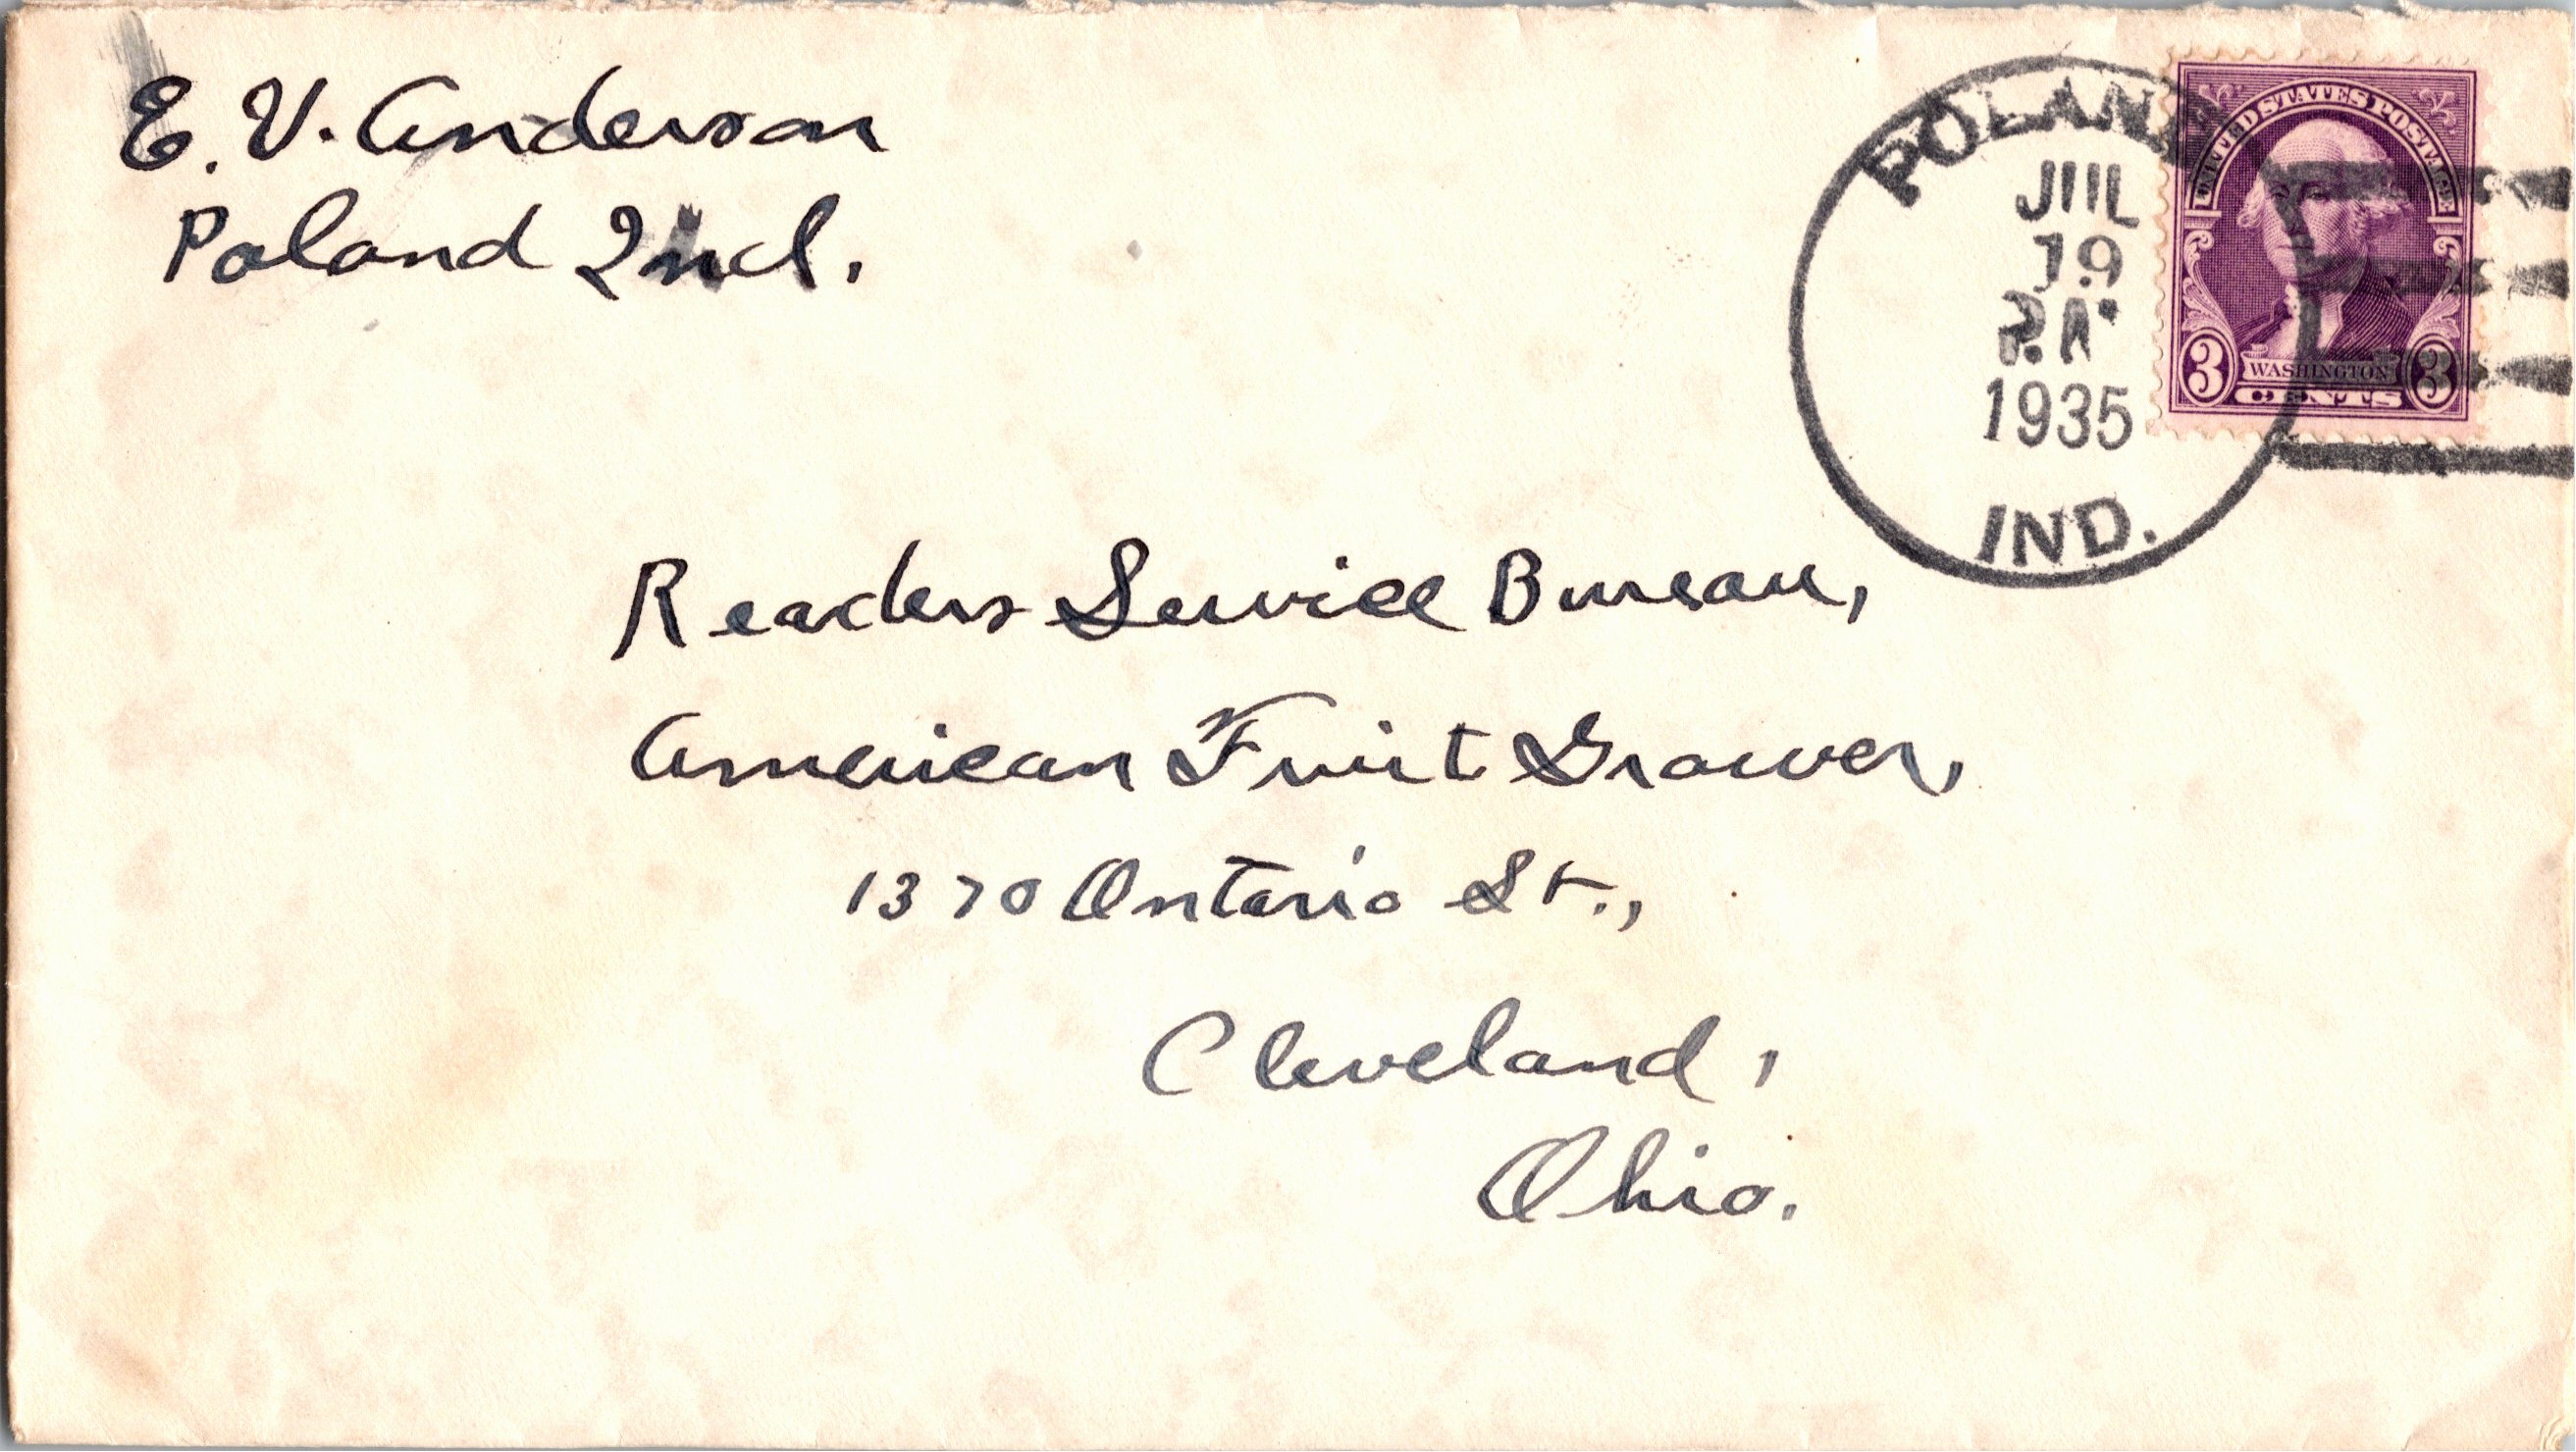 E. V. Anderson
Poland Ind.
POLAND
JUL
19
P.M.
1935
IND.
UNITED STATES POSTAGE
3 WASHINGTON 3
CENTS
Readers Service Bureau,
American Fruit Grower,
1370 Ontario St.,
Cleveland,
Ohio.